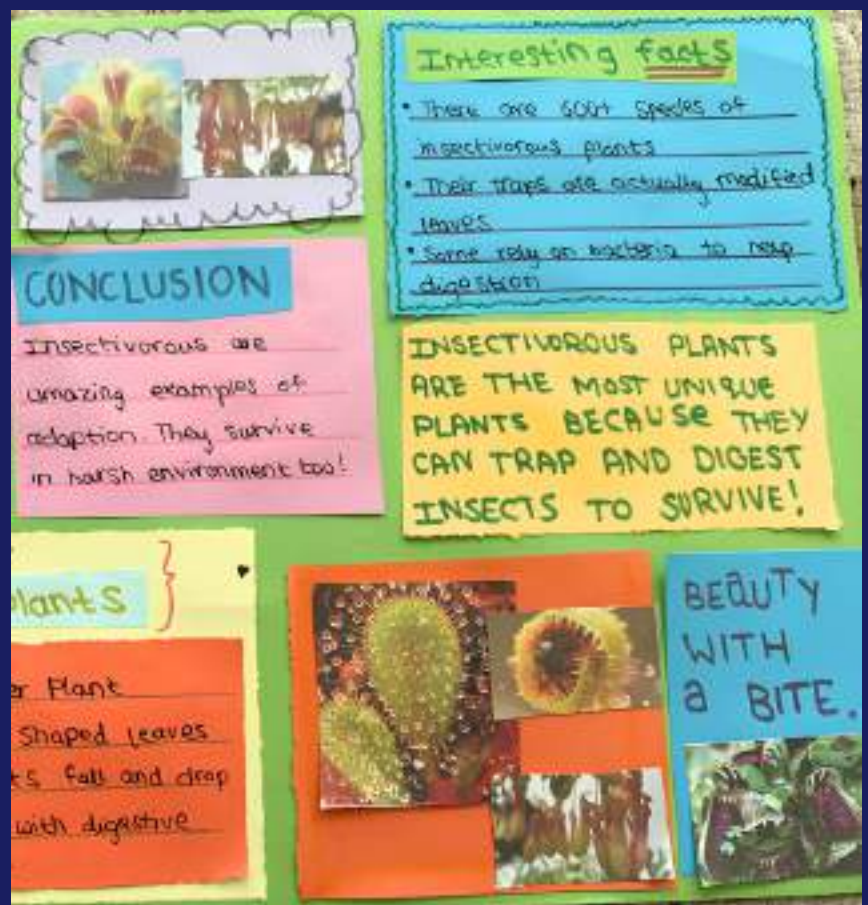 Interesting facts
• There are 600+ Species of
insectivorous plants
• Their traps are actually modified
leaves
• Some rely on bacteria to help
digestion
CONCLUSION
Insectivorous are
amazing examples of
adaption. They survive
in harsh environment too!
INSECTIVOROUS PLANTS
ARE THE MOST UNIQUE
PLANTS BECAUSE THEY
CAN TRAP AND DIGEST
INSECTS TO SURVIVE!
Plants
er Plant
Shaped leaves
ts fall and drop
with digestive
BEAUTY
WITH
a BITE.